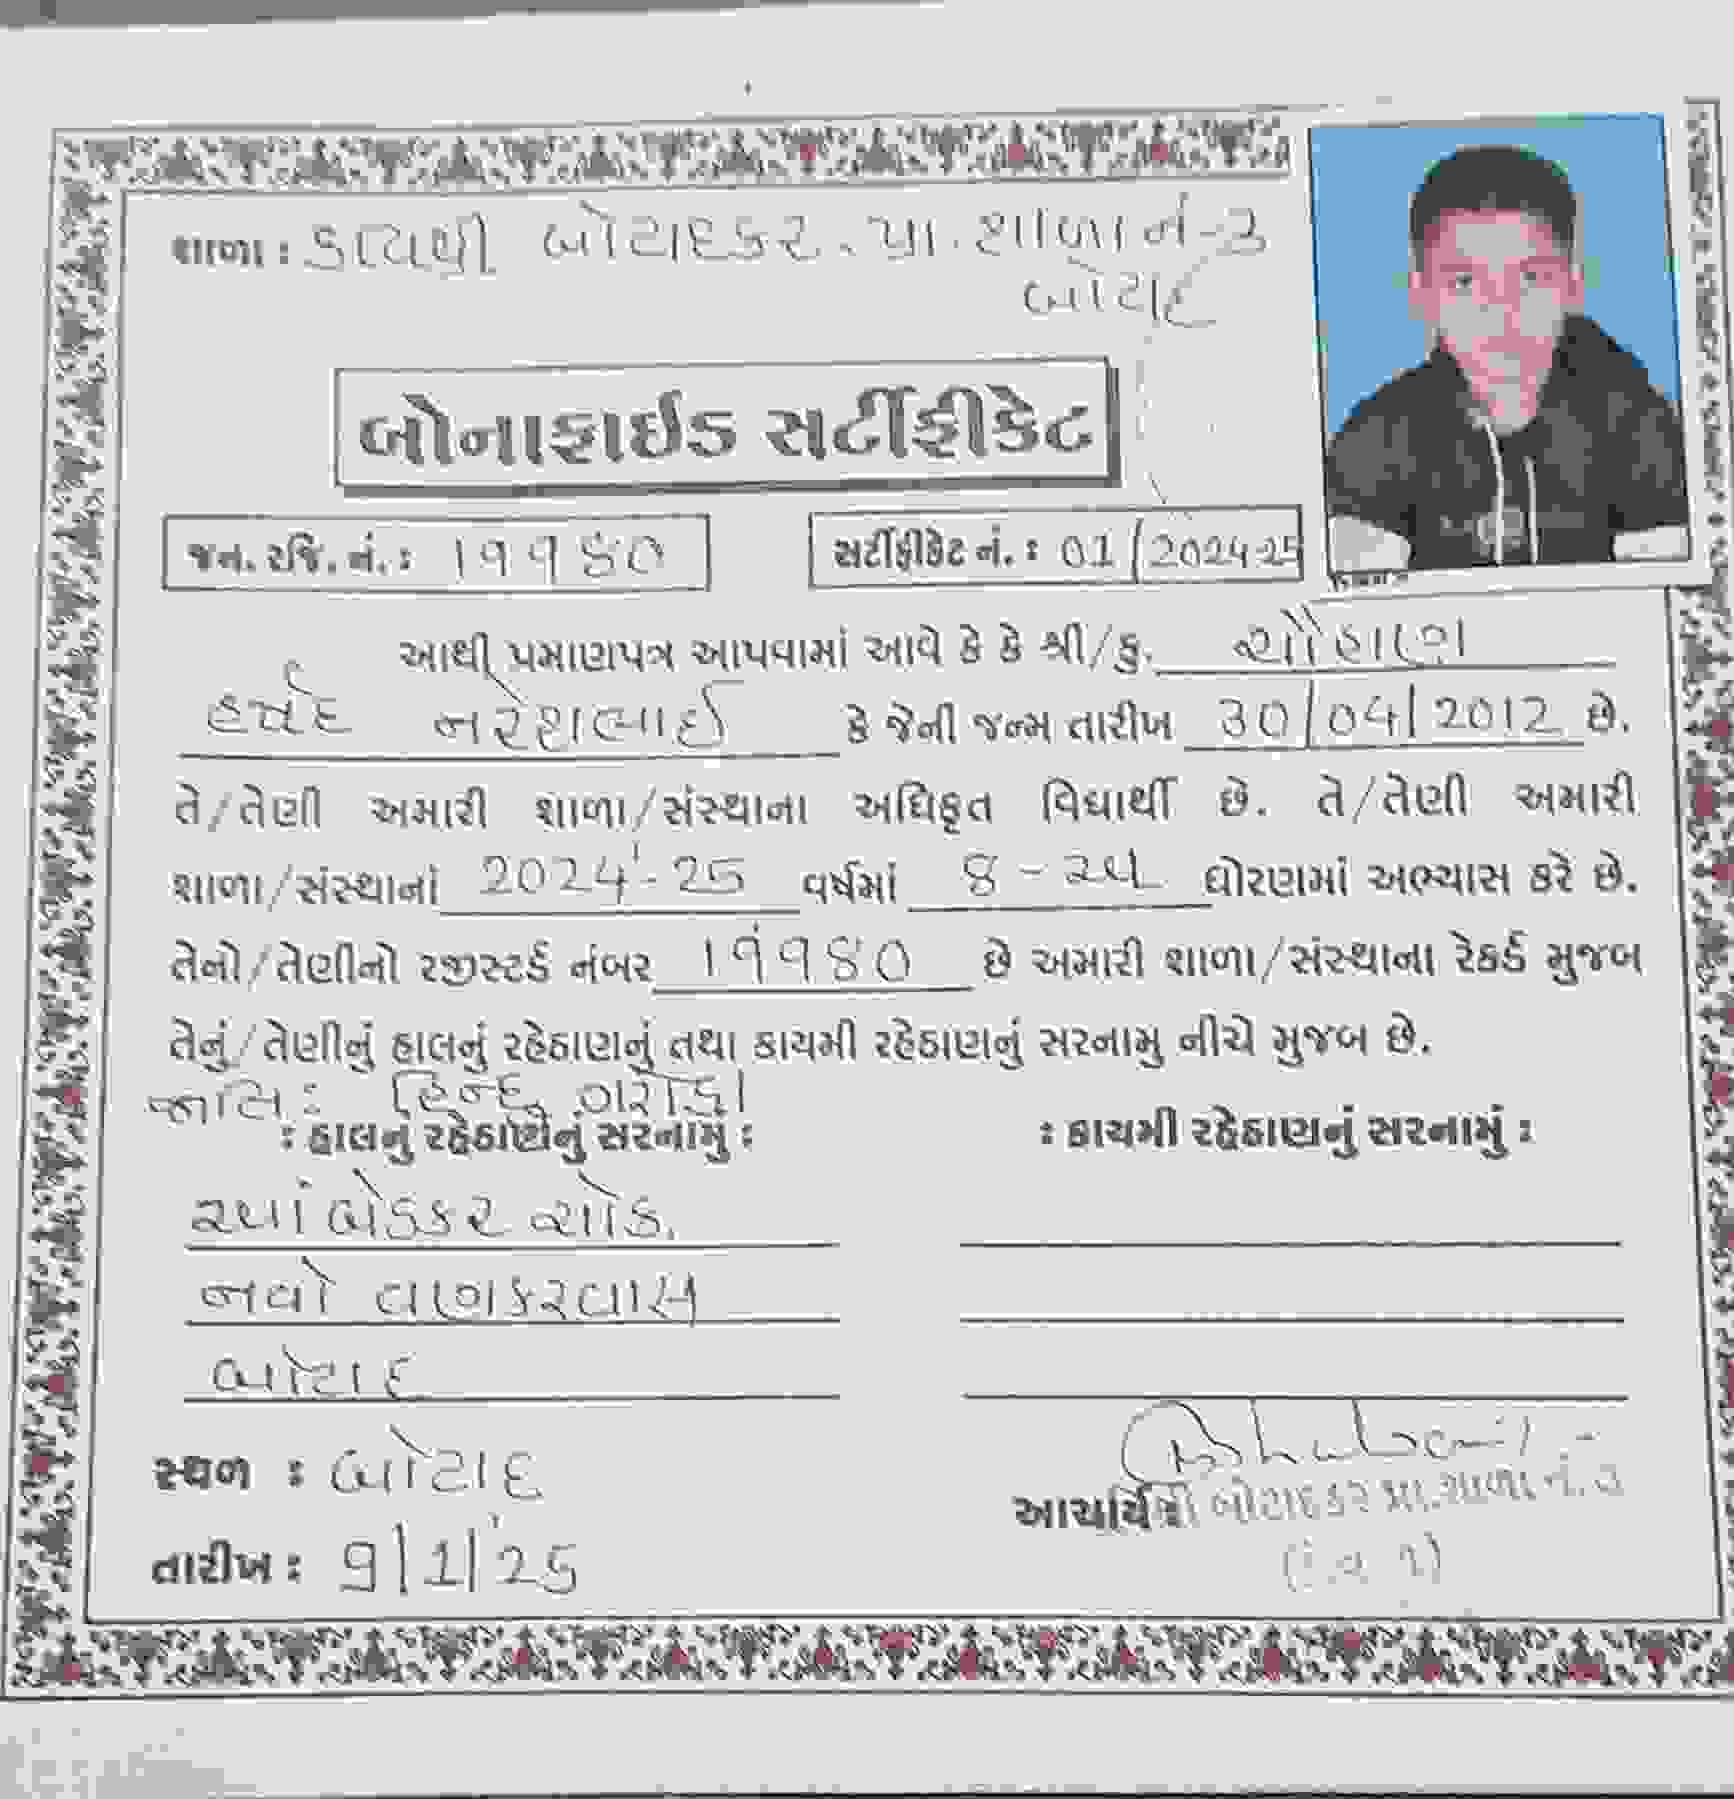 શાળા : કવિશ્રી બોટાદકર. પ્રા. શાળા નં-૩
બોટાદ
બોનાફાઈડ સર્ટીફીકેટ
જન. રજિ. નં. : ૧૧૧૪૦
સર્ટીફીકેટ નં. : 01/2024-25
આથી પ્રમાણપત્ર આપવામાં આવે કે કે શ્રી/કુ. ચૌહાણ
હર્ષદ નરેશભાઈ કે જેની જન્મ તારીખ 30/04/2012 છે.
તે/તેણી અમારી શાળા/સંસ્થાના અધિકૃત વિદ્યાર્થી છે. તે/તેણી અમારી
શાળા/સંસ્થાનાં 2024-25 વર્ષમાં 8-અ ધોરણમાં અભ્યાસ કરે છે.
તેનો/તેણીનો રજીસ્ટર્ડ નંબર ૧૧૧૪૦ છે અમારી શાળા/સંસ્થાના રેકર્ડ મુજબ
તેનું/તેણીનું હાલનું રહેઠાણનું તથા કાયમી રહેઠાણનું સરનામુ નીચે મુજબ છે.
જાતિ : હિન્દુ ગરોડા
: હાલનું રહેઠાણનું સરનામું :
: કાયમી રહેઠાણનું સરનામું :
આંબેડકર ચોક.
નવો વણકરવાસ
બોટાદ
સ્થળ : બોટાદ
આચાર્યશ્રી બોટાદકર પ્રા.શાળા નં.૩
તારીખ : 9/1/25